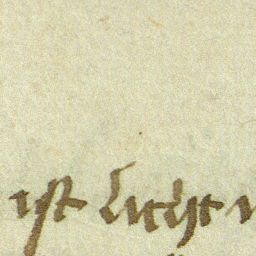 ist licht